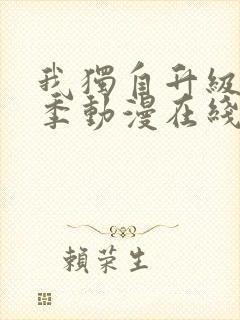 我獨自升級
季動漫在綫
賴荣生